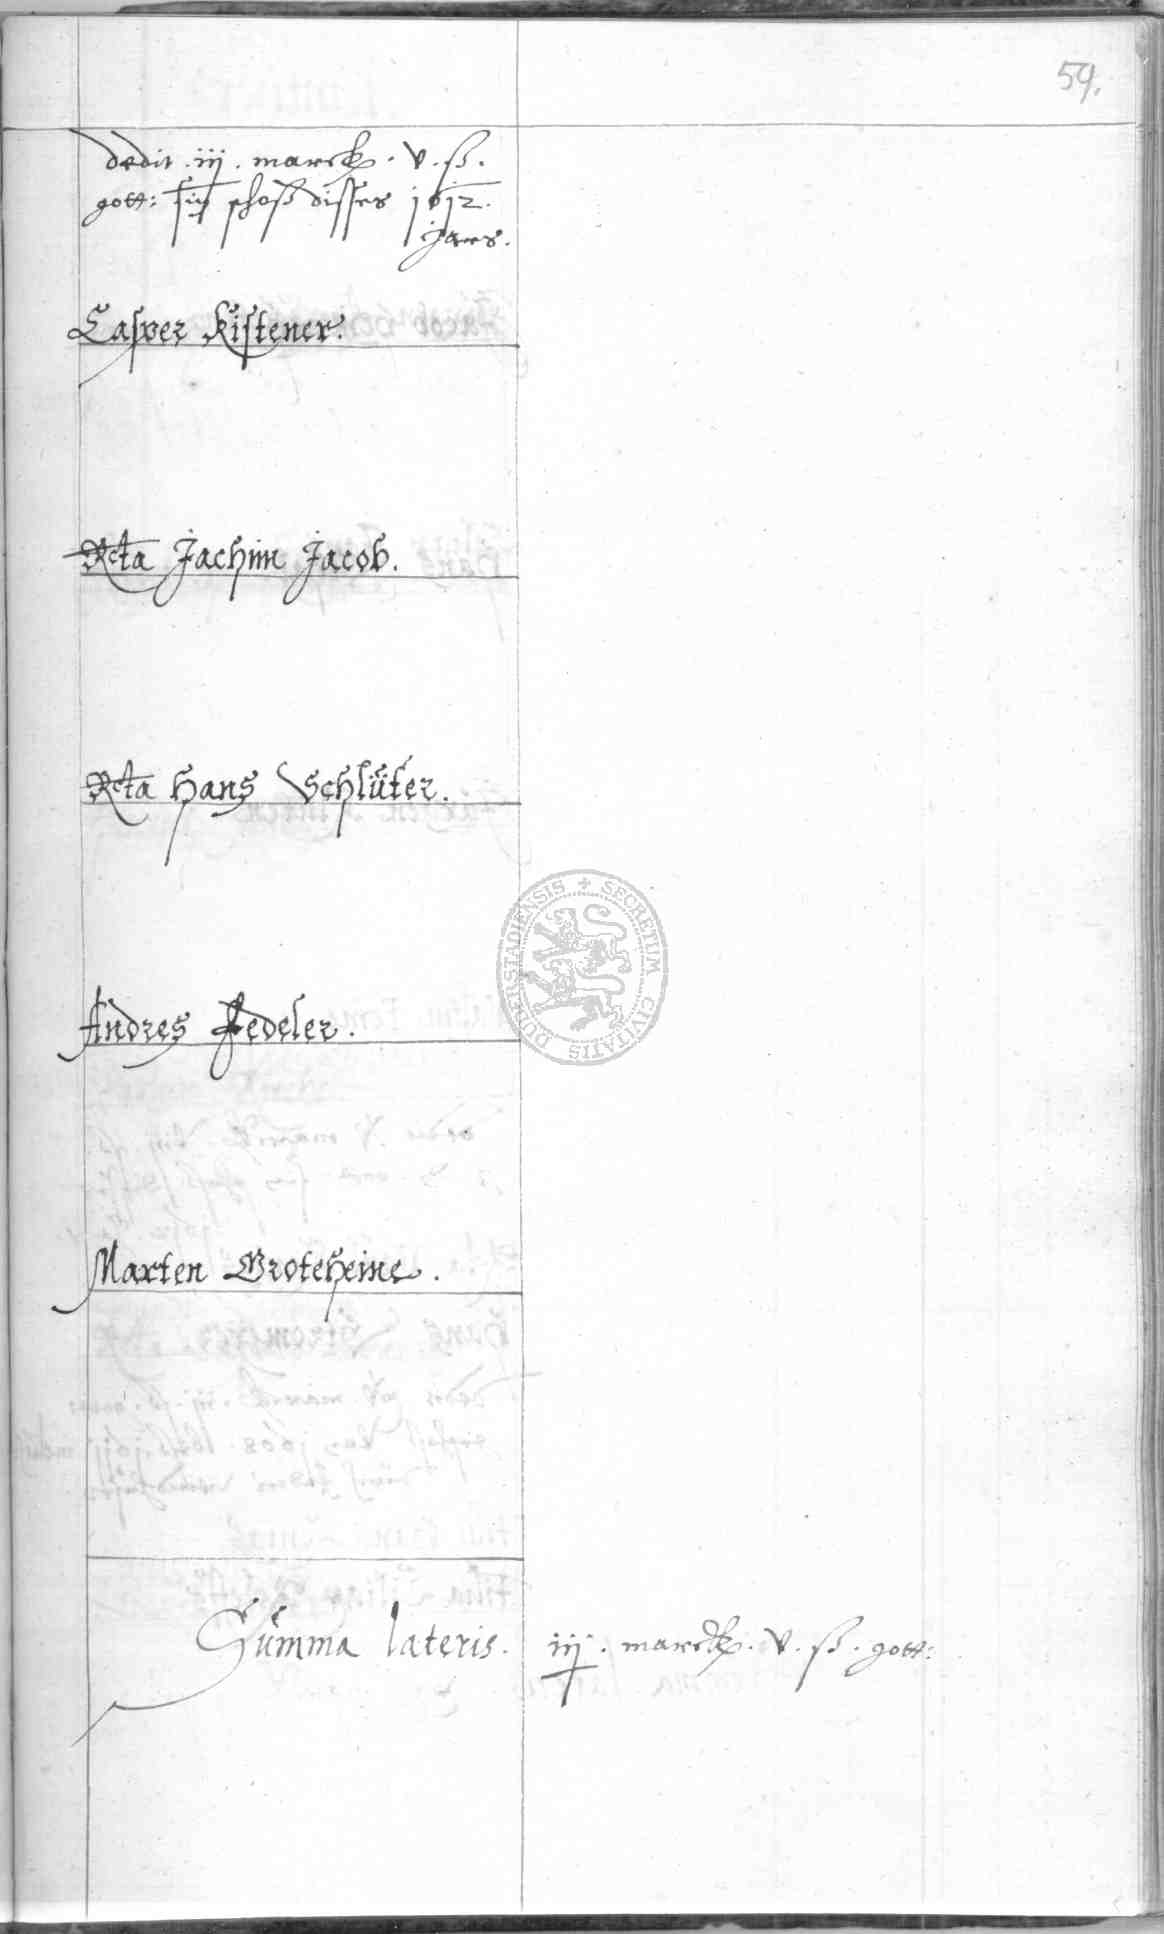 59.
dedit .iij. marck. v. ß.
gott: sin schoß disses 1612.
jars.
Casper Kistener.
Rcta Jachim Jacob.
Rcta Hans Schlüter.
Andres Fedeler.
Marten Groteheine.
Summa lateris. iij. marck. v. ß. gott:
SECRETUM CIVITATIS DUDERSTADIENSIS